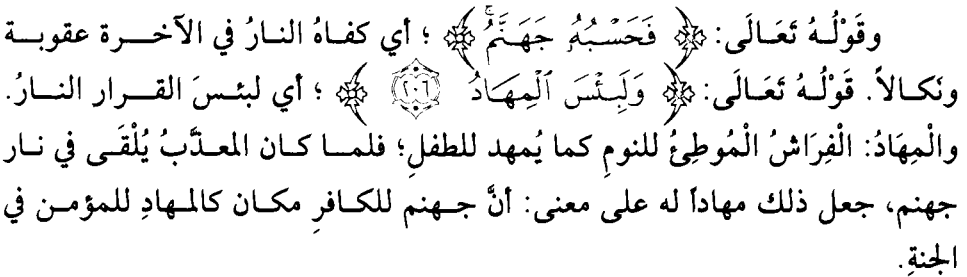 وقَوْلُهُ تَعَالَى: ﴿ فَحَسْبُهُۥ جَهَنَّمُۚ ﴾ ؛ أي كفاهُ النارُ في الآخرة عقوبة
ونَكالاً. قَوْلُهُ تَعَالَى: ﴿ وَلَبِئْسَ ٱلْمِهَادُ ٢٠٦ ﴾ ؛ أي لبئسَ القرار النارُ.
والْمِهَادُ: الْفِرَاشُ الْمُوطِئُ للنومِ كما يُمهد للطفلِ؛ فلما كان المعذَّبُ يُلْقَى في نار
جهنم، جعل ذلك مهاداً له على معنى: أنَّ جهنم للكافرِ مكان كالمهادِ للمؤمن في
الجنةِ.